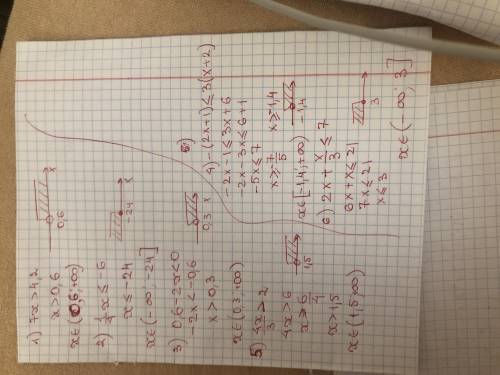 1) 7x > 4,2
x > 0,6
0,6 x
x ∈ (0,6; +∞)
2) 1/4 x ≤ -6
x ≤ -24
-24 x
x ∈ (-∞; -24]
3) 0,6 - 2x < 0
-2x < -0,6
x > 0,3
0,3 x
x ∈ (0,3; +∞)
5) 4x/3 > 2
4x > 6
x > 6/4
x > 1,5
1,5
x ∈ (1,5; +∞)
4) -(2x+1) ≤ 3(x+2)
-2x - 1 ≤ 3x + 6
-2x - 3x ≤ 6 + 1
-5x ≤ 7
x ≥ -7/5
x ≥ -1,4
-1,4
x ∈ [-1,4; +∞)
6) 2x + x/3 ≤ 7
6x + x ≤ 21
7x ≤ 21
x ≤ 3
3
x ∈ (-∞; 3]